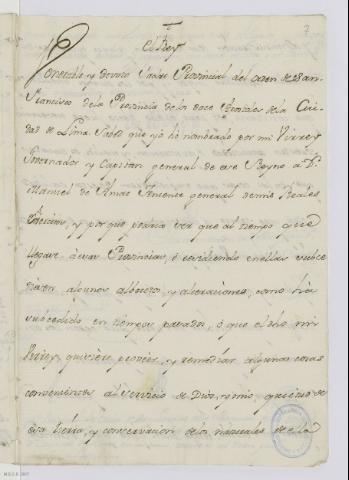 El Rey
Venerable y devoto Padre Provincial del orden de San
Francisco de la Provincia de los doce Apostoles de la Ciu-
dad de Lima Sabed que yo he nombrado por mi Virrey
Governador y Capitan general de ese Reyno a Dn.
Manuel de Amat Teniente general de mis Reales
Exercitos, y por que podria ser que al tiempo que
llegare a esas Provincias, ó residiendo en ellas subce
diesen algunos alborotos, y alteraciones, como ha
subcedido en tiempos pasados, ó que el dho mi
Virrey quisiere proveer, y remediar algunas cosas
convenientes al servicio de Dios, y mio, quietud de
esa tierra, y conservacion de los naturales de ella